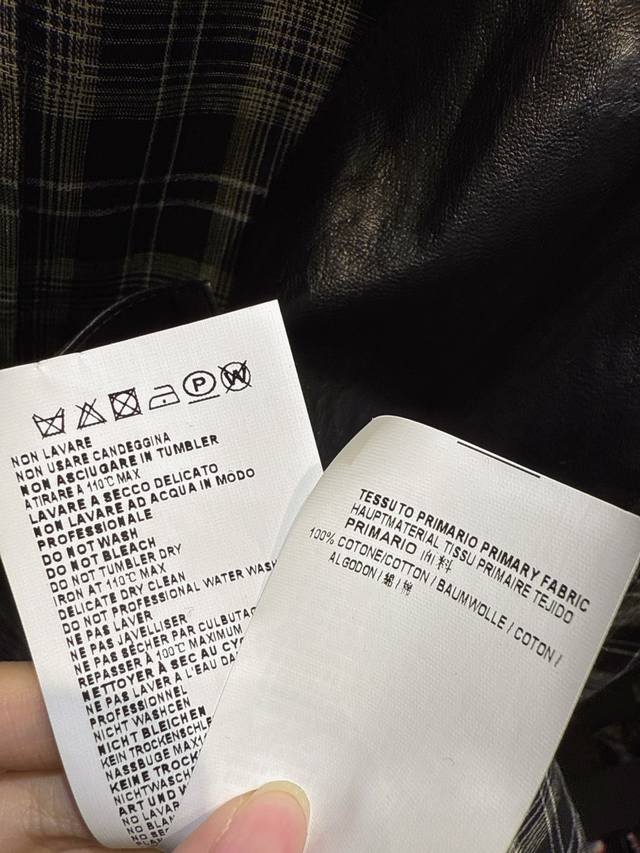 P
W
NON LAVARE
NON USARE CANDEGGINA
NON ASCIUGARE IN TUMBLER
ATIRARE A 110°C MAX
LAVARE A SECCO DELICATO
NON LAVARE AD ACQUA IN MODO
PROFESSIONALE
DO NOT WASH
DO NOT BLEACH
DO NOT TUMBLER DRY
IRON AT 110°C MAX
DELICATE DRY CLEAN
DO NOT PROFESSIONAL WATER WASH
NE PAS LAVER
NE PAS JAVELLISER
NE PAS SÉCHER PAR CULBUTAG
REPASSER À 100°C MAXIMUM
NETTOYER À SEC AU CY
NE PAS LAVER A L'EAU DA
PROFESSIONNEL
NICHT WASHCEN
NICHT BLEICHEN
KEIN TROCKENSCHLE
NASSBUGE MAX
KEINE TROCK
NICHTWASCH
ART UND W
NO LAVAR
NO BLAN
NO SEC
TESSUTO PRIMARIO PRIMARY FABRIC
HAUPTMATERIAL TISSU PRIMAIRE TEJIDO
PRIMARIO 面料
100% COTONE/COTTON / BAUMWOLLE / COTON /
ALGODON / 綿 / 棉